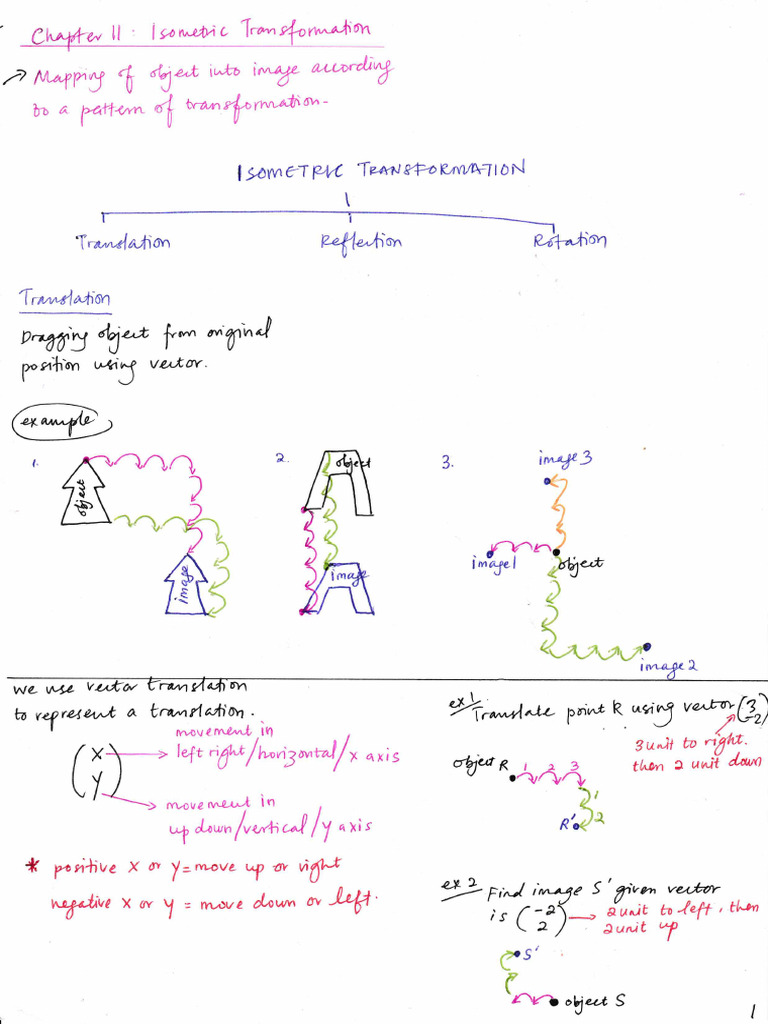 Chapter 11 : Isometric Transformation
→ Mapping of object into image according
to a pattern of transformation.
ISOMETRIC TRANSFORMATION
Translation Reflection Rotation
Translation
Dragging object from original
position using vector.
example
1. object image
2. object image
3. image 3 image 1 object image 2
we use vector translation
to represent a translation.
(x y)
movement in
left right/horizontal/x axis
movement in
up down/vertical/y axis
* positive x or y = move up or right
negative x or y = move down or left.
ex 1 Translate point R using vector (3 -2)
3 unit to right.
then 2 unit down
object R 1 2 3
1
2
R'
ex 2 Find image S' given vector
is (-2 2) → 2 unit to left, then
2 unit up
S'
object S
1